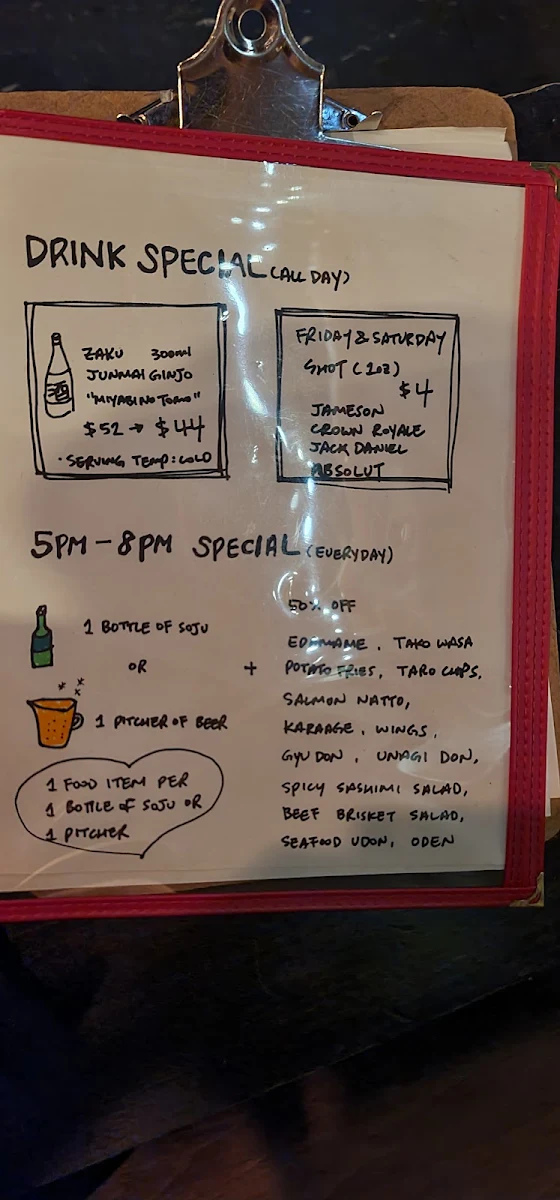 DRINK SPECIAL (ALL DAY)
ZAKU 300ml
JUNMAI GINJO
"MIYABI NO TOMO"
$52 → $44
• SERVING TEMP: COLD
FRIDAY & SATURDAY
SHOT (1oz)
$4
JAMESON
CROWN ROYALE
JACK DANIEL
ABSOLUT
5PM - 8PM SPECIAL (EVERYDAY)
1 BOTTLE OF SOJU
OR
1 PITCHER OF BEER
1 FOOD ITEM PER
1 BOTTLE OF SOJU OR
1 PITCHER
+
50% OFF
EDAMAME, TAKO WASA
POTATO FRIES, TARO CHIPS,
SALMON NATTO,
KARAAGE, WINGS,
GYU DON, UNAGI DON,
SPICY SASHIMI SALAD,
BEEF BRISKET SALAD,
SEAFOOD UDON, ODEN